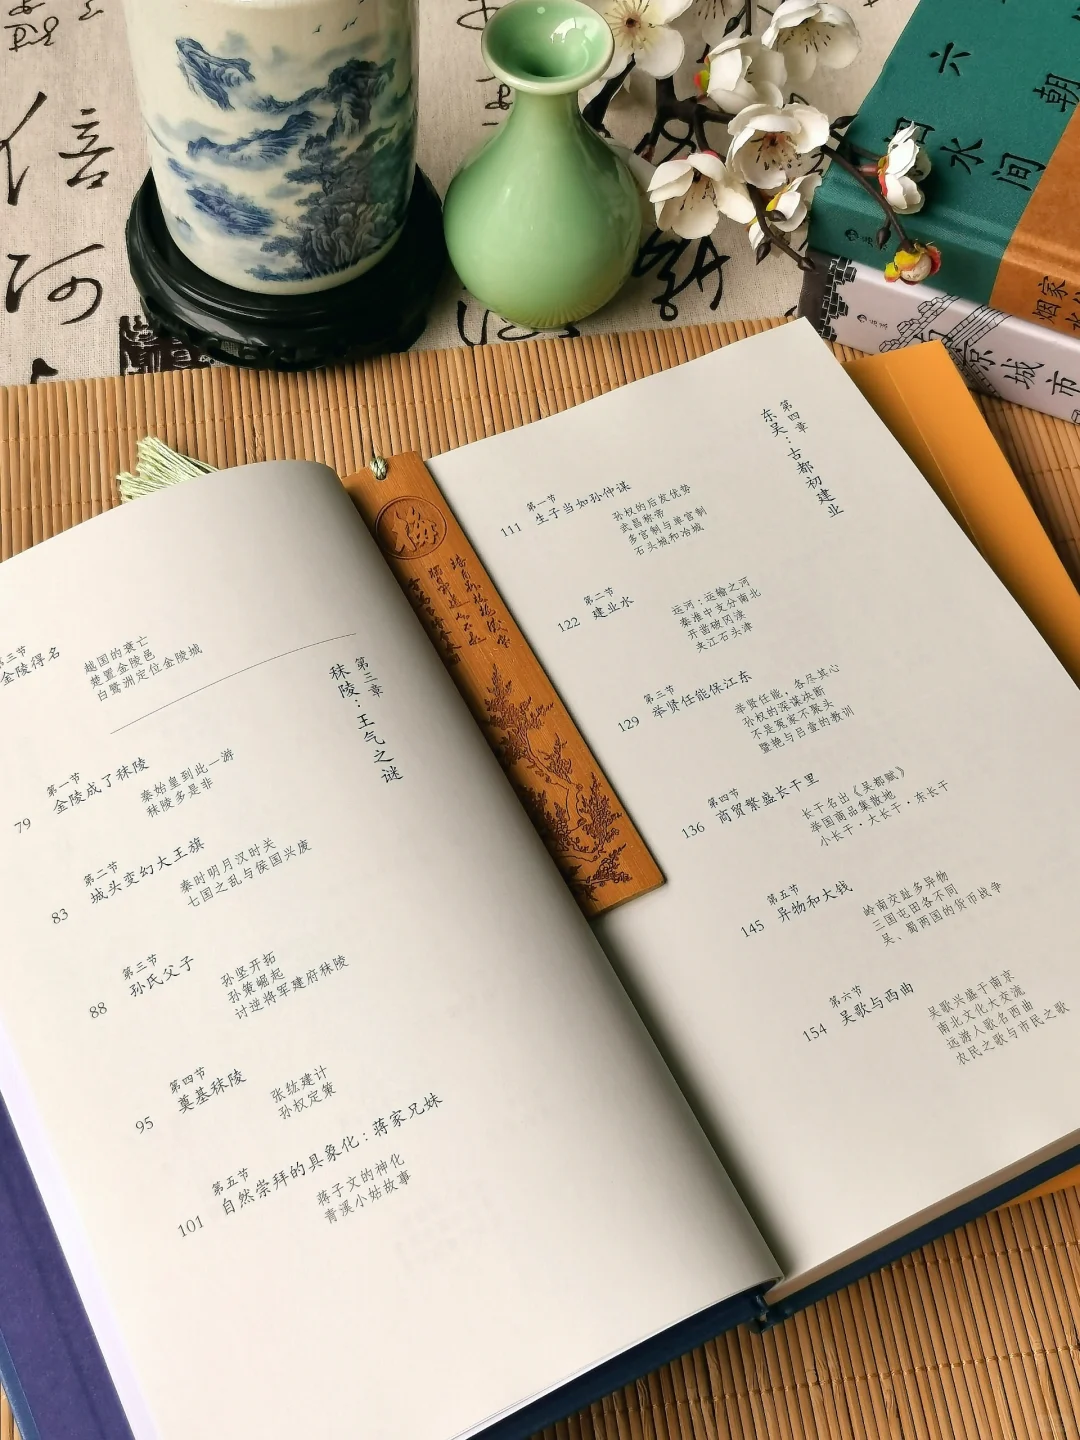 第三节
金陵得名
越国的衰亡
楚置金陵邑
白鹭洲定位金陵城
第三章
秣陵：王气之谜
第一节
79 金陵成了秣陵
秦始皇到此一游
秣陵多是非
第二节
83 城头变幻大王旗
秦时明月汉时关
七国之乱与侯国兴废
第三节
88 孙氏父子
孙坚开拓
孙策崛起
讨逆将军建府秣陵
第四节
95 奠基秣陵
张纮建计
孙权定策
第五节
101 自然崇拜的具象化：蒋家兄妹
蒋子文的神化
青溪小姑故事
第四章
东吴：古都初建业
第一节
111 生子当如孙仲谋
孙权的后发优势
武昌称帝
多宫制与单宫制
石头城和冶城
第二节
122 建业水
运河：运输之河
秦淮中支分南北
开凿破冈渎
夹江石头津
第三节
129 举贤任能保江东
举贤任能，各尽其心
孙权的深谋决断
不是冤家不聚头
暨艳与吕壹的教训
第四节
136 商贸繁盛长干里
长干名出《吴都赋》
举国商品集散地
小长干·大长干·东长干
第五节
145 异物和大钱
岭南交趾多异物
三国屯田各不同
吴、蜀两国的货币战争
第六节
154 吴歌与西曲
吴歌兴盛于南京
南北文化大交流
远游人歌名西曲
农民之歌与市民之歌
梅
六朝
烟水间
烟家
水
京城市
倍
河